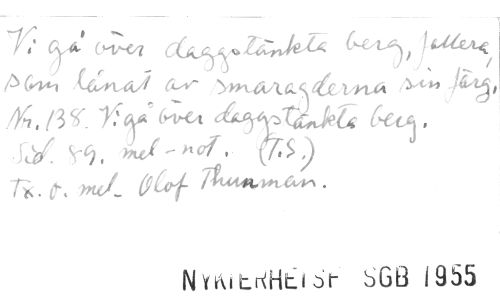 Vi gå över daggstänkta berg, fallera,
som lånat av smaragderna sin färg.
Nr. 138. Vi gå över daggstänkta berg.
Sid. 89. mel-not. (T.S.)
Tx. o. mel. Olof Thunman.
NYKTERHETSF SGB 1955